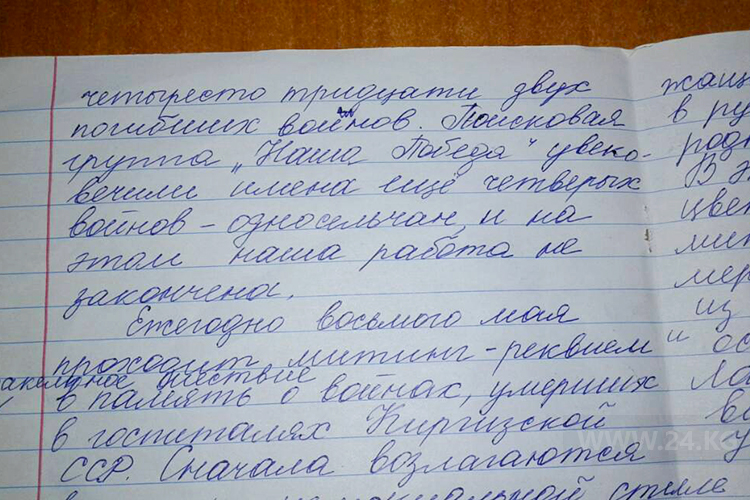 четыресто тридцати двух
погибших войнов. Поисковая
группа „Наша Победа" увеко-
вечили имена ещё четверых
войнов - односельчан, и на
этом наша работа не
закончена.
Ежегодно восьмого мая
проходит митинг-реквием и
шествие
в память о войнах, умерших
в госпиталях Киргизской
ССР. Сначала возлагаются
стиле
жащ
в ру
родн
В э
цве
мит
мер
из
ос
Ла
во
у
www.24.kg